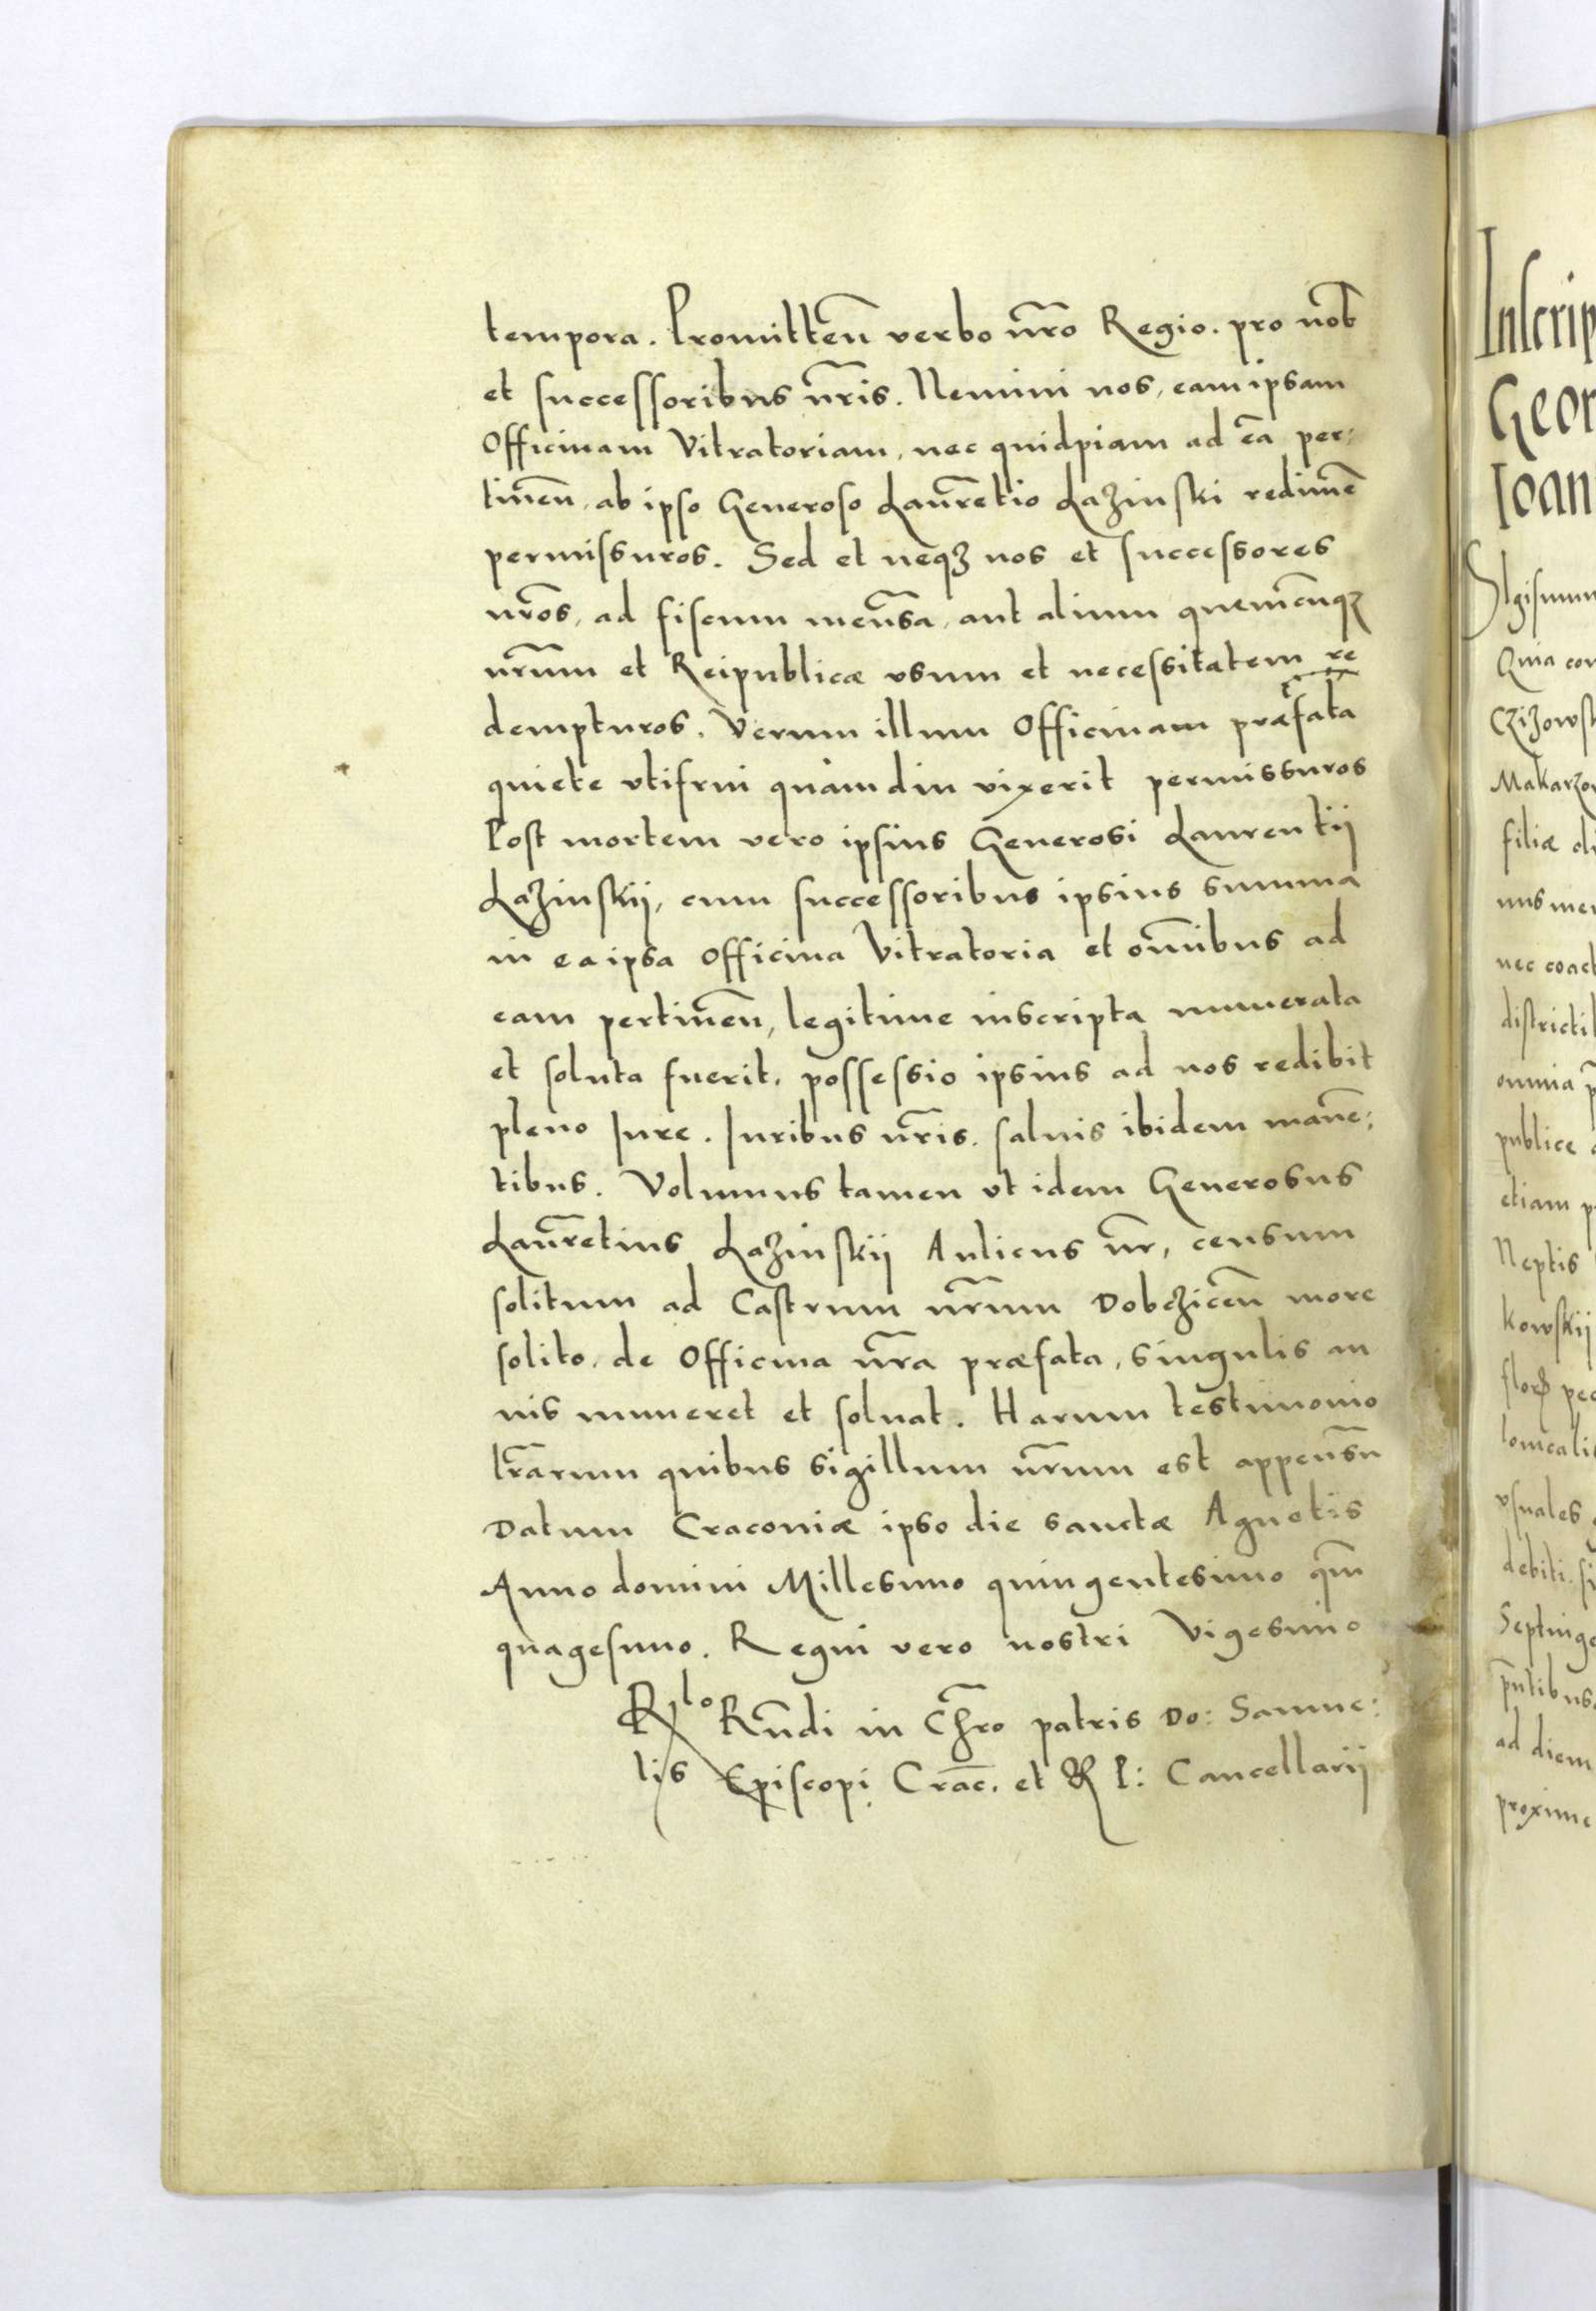 tempora. Promitteñ verbo nr̃o Regio. pro nob̃
et successoribus nr̃is. Nemini nos, eam ipsam
Officinam Vitratoriam, nec quidpiam ad eã per:
tineñ, ab ipso Generoso Laur̃etio Lazinski redimẽ
permissuros. Sed et neqꝫ nos et successores
nr̃os, ad fiscum meñsa, aut alium quem̃cuqꝫ
nr̃um et Reipublicæ vsum et necessitatem re
dempturos. Verum illum Officinam præfata
quiete vtifrui quamdiu vixerit permissuros
Post mortem vero ipsius Generosi Laurentij
Lazinskij, cum successoribus ipsius summa
in ea ipsa Officina Vitratoria et om̃ibus ad
eam pertineñ, legitime inscripta numerata
et soluta fuerit, possessio ipsius ad nos redibit
pleno Iure. Iuribus nr̃is. saluis ibidem manẽ:
tibus. Volumus tamen vt idem Generosus
Laur̃etius Lazinskij Aulicus nr̃, censum
solitum ad Castrum nr̃um Dobcziceñ more
solito, de Officina nr̃a præfata, singulis an
nis numeret et soluat. Harum testimonio
lr̃arum quibus sigillum nr̃um est appensũ
Datum Cracouiæ ipso die sanctæ Agnetis
Anno domini Millesimo quingentesimo qm̃
quagesimo. Regni vero nostri Vigesimo
Rlo Rñdi in Chr̃o patris Do: Samue:
lis Episcopi Crac̃. et R P: Cancellarij
Inscrip
Geor
Ioan
Sigismun
Quia con
Czizowsk
Makarzow
filiæ oli
nus men
nec coact
districti
omnia p̃
publice
etiam p
Neptis
kowskij
flor pec
lonicali
vsuales
debiti. si
Septinge
pñtibus
ad diem
proxime